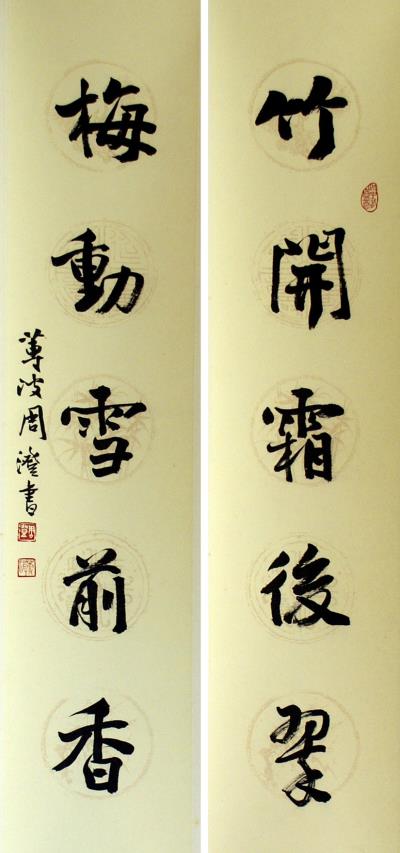 竹開霜後翠
梅動雪前香
蓴波周澄書